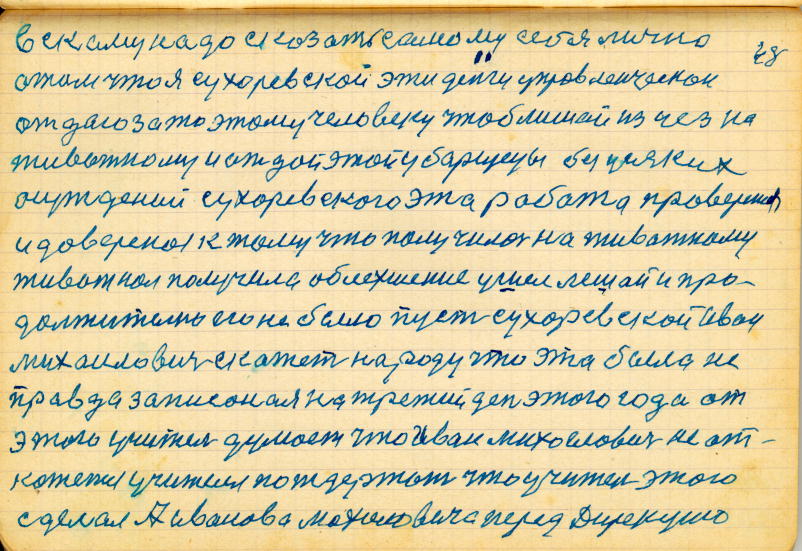 вскаму надо сказать самому себя лично
48
отом что я сухоревской эти дейги управленческои
отдаю зато этому человеку чтоб лишай изчез на
животному и отдой этой уборщецы без всяких
осуждений сухоревского эта работа проверина
и доверено к тому что получилоя на животному
животноя получила облехшение ушел лешай и про-
должително его не было пуст сухоревской Иван
михаилович скажет народу что эта была не
правда записоная на третий ден этого года от
этого учител думает что Иван михоилович не от-
кажет учителя потдержат что учител этого
сделал А иванова мохоловича перед Дирекцию